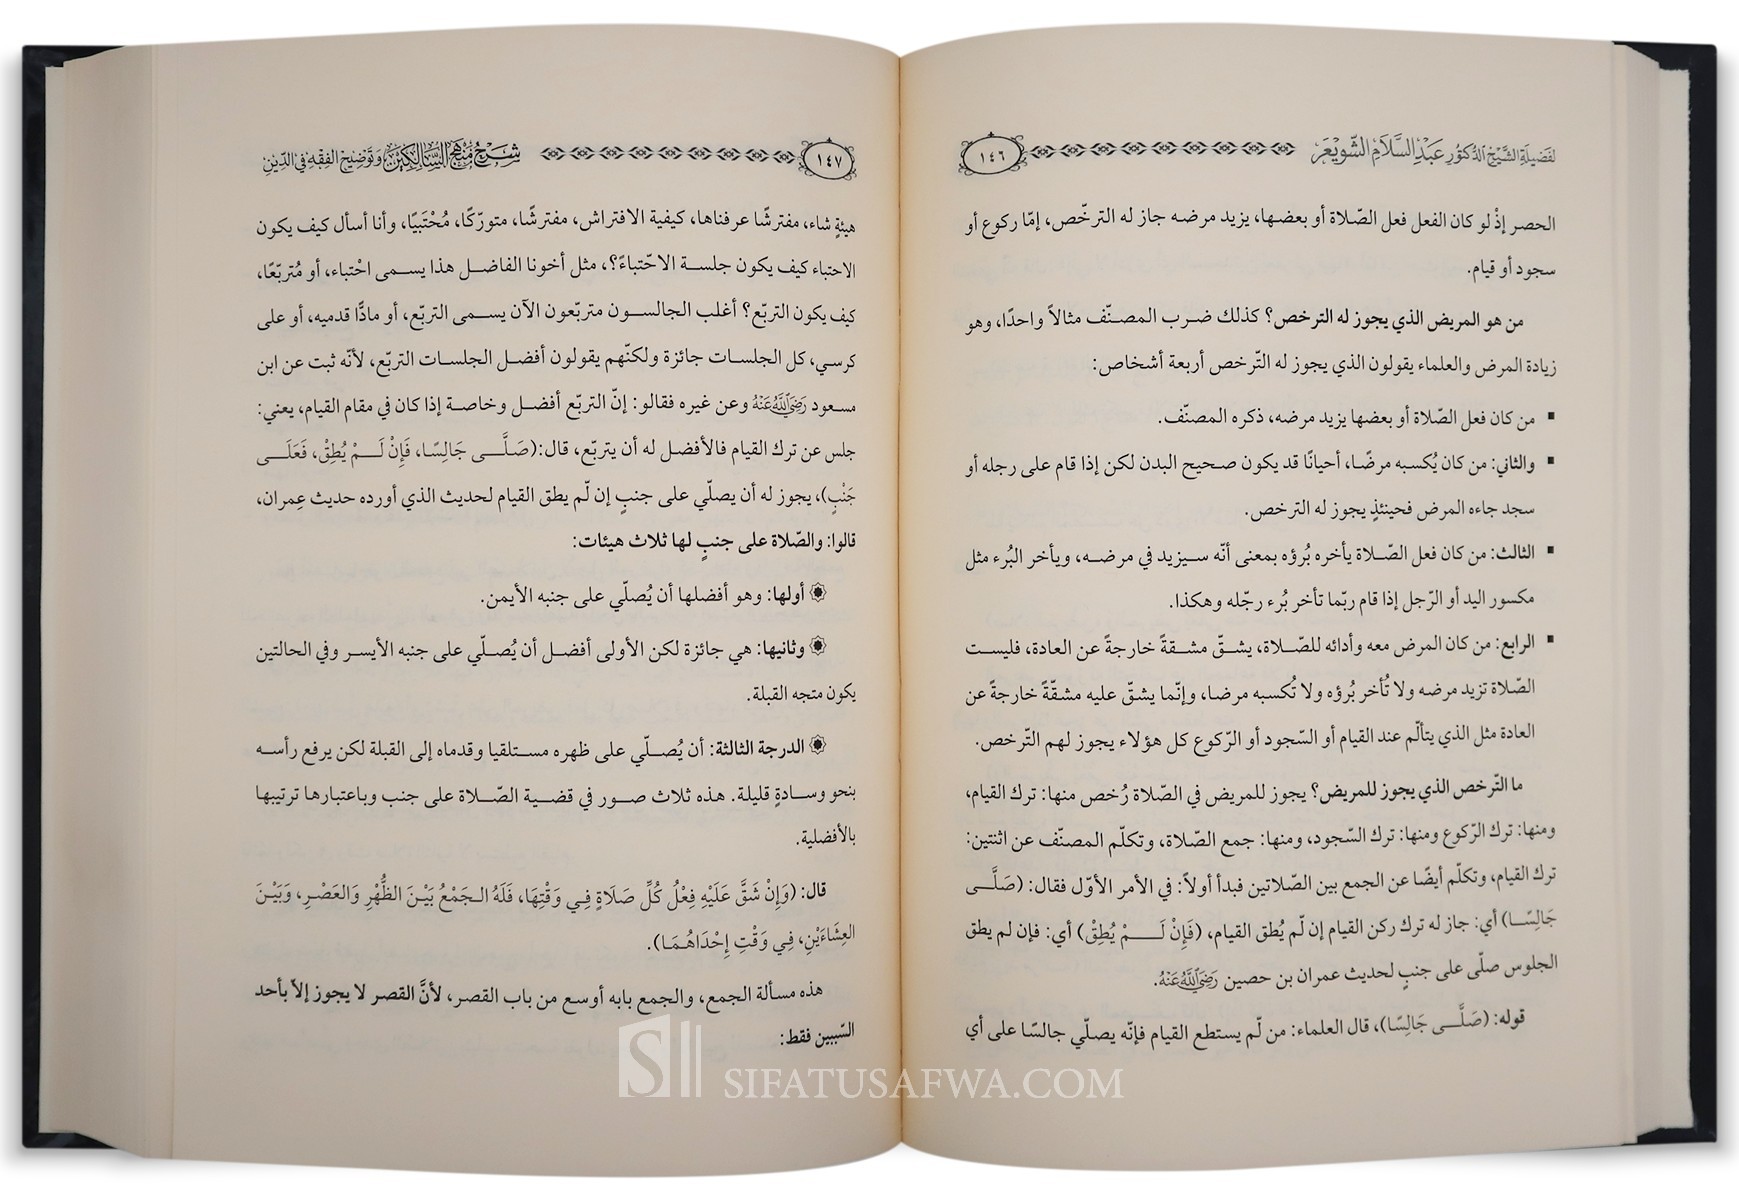 لفضيلة الشيخ الدكتور عبد السلام الشويعر
١٤٦
الحصر إذْ لو كان الفعل فعل الصّلاة أو بعضها، يزيد مرضه جاز له الترخّص، إمّا ركوع أو
سجود أو قيام.
من هو المريض الذي يجوز له الترخص؟ كذلك ضرب المصنّف مثالاً واحدًا، وهو
زيادة المرض والعلماء يقولون الذي يجوز له التّرخص أربعة أشخاص:
▪ من كان فعل الصّلاة أو بعضها يزيد مرضه، ذكره المصنّف.
▪ والثاني: من كان يُكسبه مرضًا، أحيانًا قد يكون صحيح البدن لكن إذا قام على رجله أو
سجد جاءه المرض فحينئذٍ يجوز له الترخص.
▪ الثالث: من كان فعل الصّلاة يأخره بُرؤه بمعنى أنّه سيزيد في مرضه، ويأخر البُرء مثل
مكسور اليد أو الرّجل إذا قام ربّما تأخر بُرء رجّله وهكذا.
▪ الرابع: من كان المرض معه وأدائه للصّلاة، يشقّ مشقةً خارجةً عن العادة، فليست
الصّلاة تزيد مرضه ولا تُأخر بُرؤه ولا تُكسبه مرضا، وإنّما يشقّ عليه مشقّةً خارجةً عن
العادة مثل الذي يتألّم عند القيام أو السّجود أو الرّكوع كل هؤلاء يجوز لهم التّرخص.
ما التّرخص الذي يجوز للمريض؟ يجوز للمريض في الصّلاة رُخص منها: ترك القيام،
ومنها: ترك الرّكوع ومنها: ترك السّجود، ومنها: جمع الصّلاة، وتكلّم المصنف عن اثنتين:
ترك القيام، وتكلّم أيضًا عن الجمع بين الصّلاتين فبدأ أولاً: في الأمر الأوّل فقال: (صَلَّى
جَالِسًا) أي: جاز له ترك ركن القيام إن لّم يُطق القيام، (فَإِنْ لَمْ يُطِقْ) أي: فإن لم يطق
الجلوس صلّى على جنبٍ لحديث عمران بن حصين رَضِيَ اللَّهُ عَنْهُ.
قوله: (صَلَّى جَالِسًا)، قال العلماء: من لّم يستطع القيام فإنّه يصلّي جالسًا على أي
شرح منهج السالكين وتوضيح الفقه في الدين
١٤٧
هيئةٍ شاء، مفترشًا عرفناها، كيفية الافتراش، مفترشًا، متورّكًا، مُحْتَبيًا، وأنا أسأل كيف يكون
الاحتباء كيف يكون جلسة الاحّتباءً؟، مثل أخونا الفاضل هذا يسمى احْتباء، أو مُتربّعًا،
كيف يكون التربّع؟ أغلب الجالسون متربّعون الآن يسمى التربّع، أو مادًّا قدميه، أو على
كرسي، كل الجلسات جائزة ولكنّهم يقولون أفضل الجلسات التربّع، لأنّه ثبت عن ابن
مسعود رَضِيَ اللَّهُ عَنْهُ وعن غيره فقالو: إنّ التربّع أفضل وخاصة إذا كان في مقام القيام، يعني:
جلس عن ترك القيام فالأفضل له أن يتربّع، قال:(صَلَّى جَالِسًا، فَإِنْ لَمْ يُطِقْ، فَعَلَى
جَنْبٍ)، يجوز له أن يصلّي على جنبٍ إن لّم يطق القيام لحديث الذي أورده حديث عِمران،
قالوا: والصّلاة على جنبٍ لها ثلاث هيئات:
أولها: وهو أفضلها أن يُصلّي على جنبه الأيمن.
وثانيها: هي جائزة لكن الأولى أفضل أن يُصلّي على جنبه الأيسر وفي الحالتين
يكون متجه القبلة.
الدرجة الثالثة: أن يُصلّي على ظهره مستلقيا وقدماه إلى القبلة لكن يرفع رأسه
بنحو وسادةٍ قليلة. هذه ثلاث صور في قضية الصّلاة على جنب وباعتبارها ترتيبها
بالأفضلية.
قال: (وَإِنْ شَقَّ عَلَيْهِ فِعْلُ كُلِّ صَلَاةٍ فِي وَقْتِهَا، فَلَهُ الجَمْعُ بَيْنَ الظُّهْرِ وَالعَصْرِ، وَبَيْنَ
العِشَاءَيْنِ، فِي وَقْتِ إِحْدَاهُمَا).
هذه مسألة الجمع، والجمع بابه أوسع من باب القصر، لأنَّ القصر لا يجوز إلاّ بأحد
السّببين فقط:
SIFATUSAFWA.COM